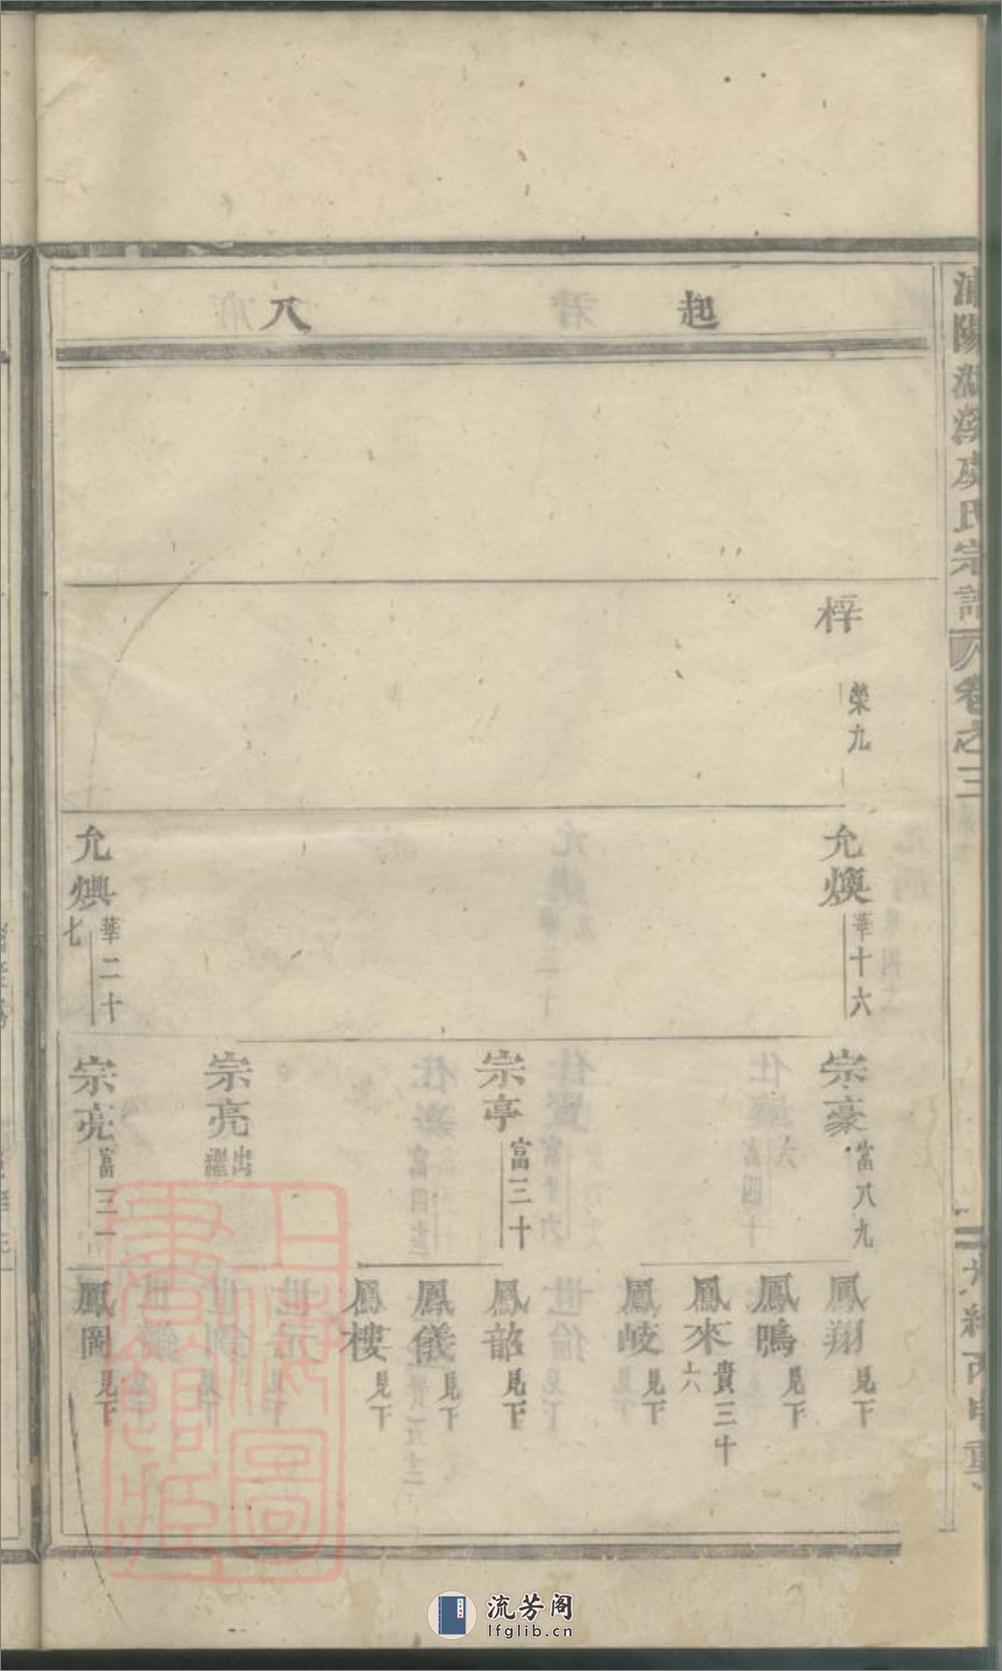 起
八
梓 榮九
允煥 華十六
允燠 華二十七
宗豪 富八九
宗亭 富三十
宗亮 出繼
宗亮 富三一
鳳翔 見下
鳳鳴 見下
鳳來 貴三十六
鳳岐 見下
鳳韶 見下
鳳儀 見下
鳳樓 見下
鳳岡 見下
氏宗譜
卷之三
流芳阁
lfglib.cn